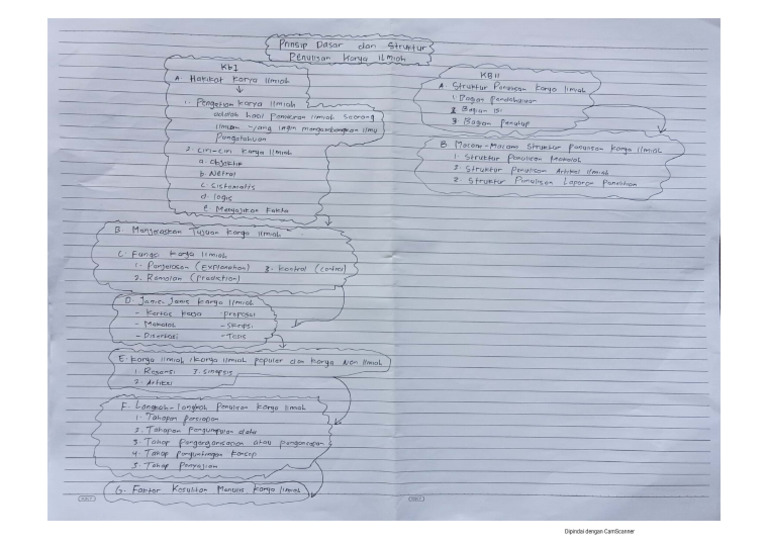 Prinsip Dasar dan Struktur
Penulisan Karya Ilmiah
Kb I
A. Hakikat Karya Ilmiah
1. Pengertian Karya Ilmiah
adalah hasil pemikiran ilmiah seorang
ilmuan yang ingin mengembangkan ilmu
Pengetahuan
2. Ciri-Ciri Karya Ilmiah
a. Objektif
b. Netral
c. Sistematis
d. logis
e. Menyajikan Fakta
B. Menjelaskan Tujuan Karya Ilmiah
C. Fungsi Karya Ilmiah
1. Penjelasan (Explanation) 3. Kontrol (control)
2. Ramalan (prediction)
D. Jenis-Jenis Karya Ilmiah
- Kertas Kerja - proposal
- Makalah - Skripsi
- Disertasi - Tesis
E. Karya Ilmiah, Karya Ilmiah populer dan Karya Non Ilmiah
1. Resensi 3. Sinopsis
2. Artikel
F. Langkah-langkah Penulisan Karya Ilmiah
1. Tahapan persiapan
2. Tahapan Pengumpulan data
3. Tahap Pengorganisasian atau pengonsepan
4. Tahap penyuntingan Konsep
5. Tahap Penyajian
G. Faktor Kesulitan Menulis Karya Ilmiah
KB II
A. Struktur Penulisan Karya Ilmiah
1. Bagian Pendahuluan
2. Bagian Isi
3. Bagian Penutup
B. Macam-Macam Struktur penulisan Karya Ilmiah
1. Struktur Penulisan Makalah
2. Struktur Penulisan Artikel Ilmiah
2. Struktur Penulisan Laporan Penelitian
Dipindai dengan CamScanner